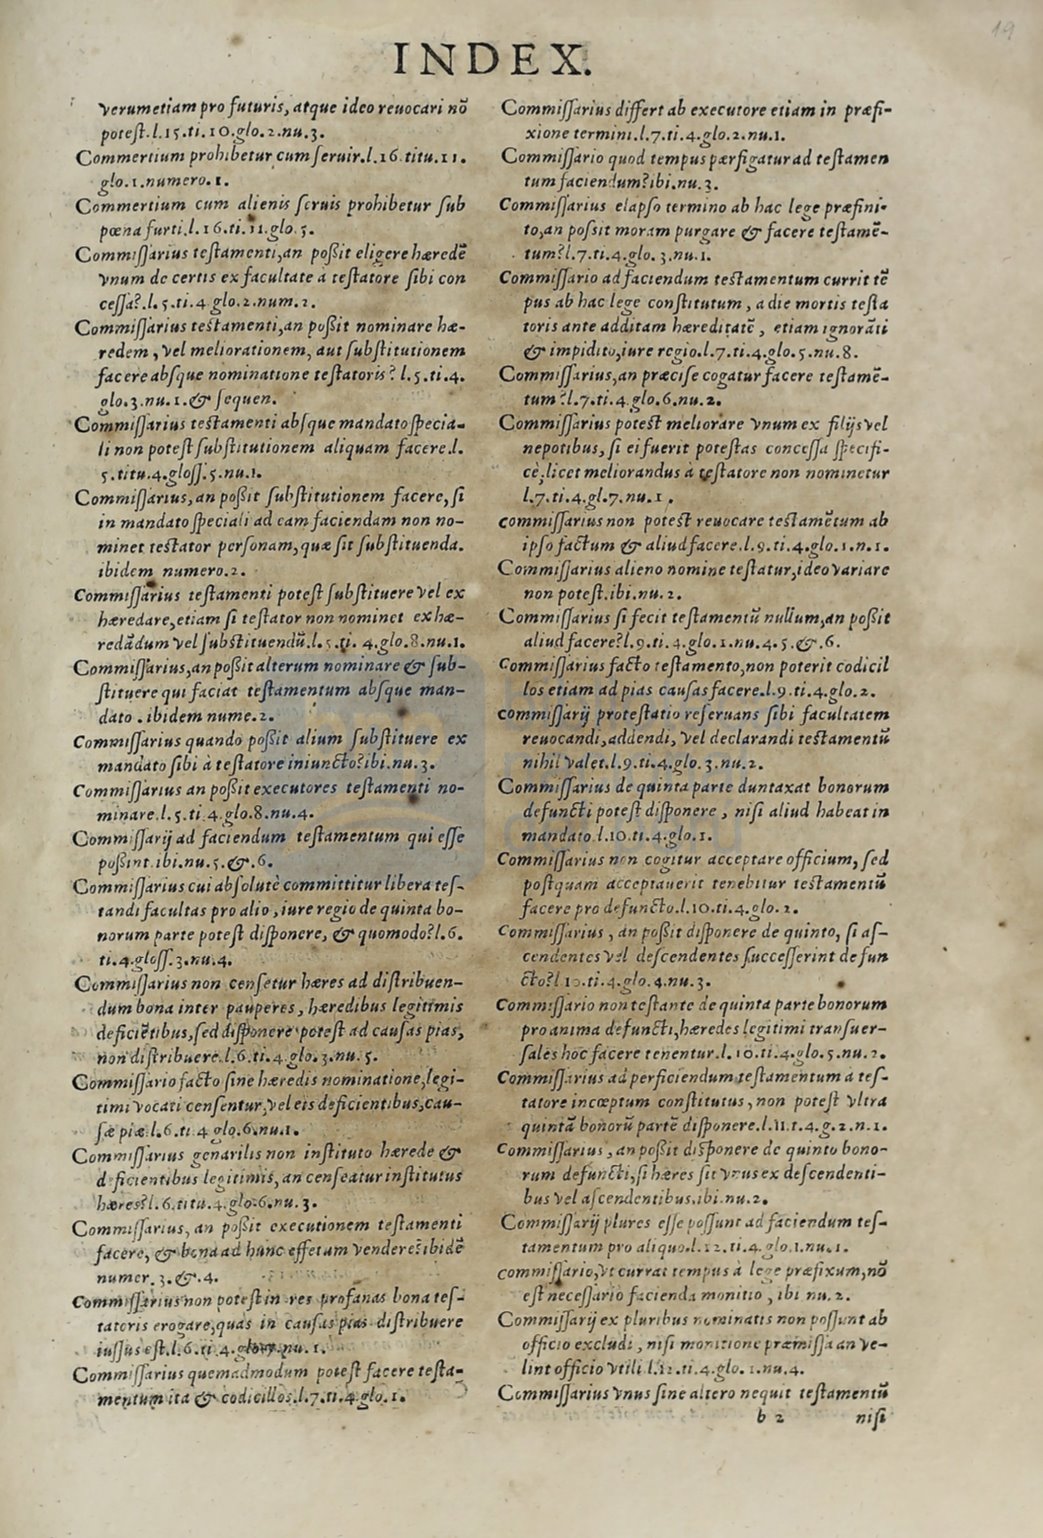 19
INDEX.
verumetiam pro futuris, atque ideo reuocari nõ
potest.l.15.ti.10.glo.2.nu.3.
Commertium prohibetur cum seruir.l.16.titu.11.
glo.1.numero.1.
Commertium cum alienis seruis prohibetur sub
pœna furti.l.16.ti.11.glo.5.
Commissarius testamenti,an possit eligere hæredẽ
vnum de certis ex facultate à testatore sibi con
cessa?.l.5.ti.4 glo.2.num.2.
Commissarius testamenti,an possit nominare hæ-
redem, vel meliorationem, aut substitutionem
facere absque nominatione testatoris? l.5.ti.4.
glo.3.nu.1.& sequen.
Commissarius testamenti absque mandato specia-
li non potest substitutionem aliquam facere.l.
5.titu.4.gloss.5.nu.1.
Commissarius,an possit substitutionem facere,si
in mandato speciali ad eam faciendam non no-
minet testator personam,quæ sit substituenda.
ibidem numero.2.
Commissarius testamenti potest substituere vel ex
hæredare,etiam si testator non nominet exhæ-
redãdum vel substituendũ.l.5.ti.4.glo.8.nu.1.
Commissarius,an possit alterum nominare & sub-
stituere qui faciat testamentum absque man-
dato.ibidem nume.2.
Commissarius quando possit alium substituere ex
mandato sibi à testatore iniuncto?ibi.nu.3.
Commissarius an possit executores testamenti no-
minare.l.5.ti.4.glo.8.nu.4.
Commissarij ad faciendum testamentum qui esse
possint.ibi.nu.5.&.6.
Commissarius cui absolutè committitur libera tes-
tandi facultas pro alio, iure regio de quinta bo-
norum parte potest disponere, & quomodo?l.6.
ti.4.gloss.3.nu.4.
Commissarius non censetur hæres ad distribuen-
dum bona inter pauperes, hæredibus legitimis
deficiẽtibus,sed disponere potest ad causas pias,
non distribuere.l.6.ti.4.glo.3.nu.5.
Commissario facto sine hæredis nominatione,legi-
timi vocati censentur,vel eis deficientibus,cau-
sæ piæ.l.6.ti 4 glo.6.nu.1.
Commissarius genarilis non instituto hærede &
deficientibus legitimis, an censeatur institutus
hæres?l.6.titu.4.glo.6.nu.3.
Commissarius, an possit executionem testamenti
facere, & bona ad hunc effetum vendere?ibidẽ
numer.3.&.4.
Commissarius non potest in res profanas bona tes-
tatoris erogare,quas in causas pias distribuere
iussus est.l.6.ti.4.glo.nu.1.
Commissarius quemadmodum potest facere testa-
mentum ita & codicillos.l.7.ti.4.glo.1.
Commissarius differt ab executore etiam in præfi-
xione termini.l.7.ti.4.glo.2.nu.1.
Commissario quod tempus pærfigatur ad testamen
tum faciendum?ibi.nu.3.
Commissarius elapso termino ab hac lege præfini-
to,an possit moram purgare & facere testamẽ-
tum?l.7.ti.4.glo.3.nu.1.
Commissario ad faciendum testamentum currit tẽ
pus ab hac lege constitutum, a die mortis testa
toris ante additam hæreditatẽ, etiam ignorãti
& impidito,iure regio.l.7.ti.4.glo.5.nu.8.
Commissarius,an præcise cogatur facere testamẽ-
tum?l.7.ti.4.glo.6.nu.2.
Commissarius potest meliorare vnum ex filijs vel
nepotibus, si ei fuerit potestas concessa specifi-
cè,licet meliorandus à testatore non nominetur
l.7.ti.4.gl.7.nu.1.
commissarius non potest reuocare testamẽtum ab
ipso factum & aliud facere.l.9.ti.4.glo.1.n.1.
Commissarius alieno nomine testatur,ideo variare
non potest.ibi.nu.2.
Commissarius si fecit testamentũ nullum,an possit
aliud facere?l.9.ti.4.glo.1.nu.4.5.&.6.
Commissarius facto testamento,non poterit codicil
los etiam ad pias causas facere.l.9.ti.4.glo.2.
commissarij protestatio reseruans sibi facultatem
reuocandi,addendi, vel declarandi testamentũ
nihil valet.l.9.ti.4.glo.3.nu.2.
Commissarius de quinta parte duntaxat bonorum
defuncti potest disponere, nisi aliud habeat in
mandato.l.10.ti.4.glo.1.
Commissarius non cogitur acceptare officium, sed
postquam acceptauerit tenebitur testamentũ
facere pro defuncto.l.10.ti.4.glo.2.
Commissarius, an possit disponere de quinto, si as-
cendentes vel descendentes successerint defun
cto?l 10.ti.4.glo.4.nu.3.
Commissario non testante de quinta parte bonorum
pro anima defuncti,hæredes legitimi transuer-
sales hoc facere tenentur.l.10.ti.4.glo.5.nu.2.
Commissarius ad perficiendum testamentum à tes-
tatore incœptum constitutus, non potest vltra
quintã bonorũ partẽ disponere.l.11.t.4.g.2.n.1.
Commissarius, an possit disponere de quinto bono-
rum defuncti,si hæres sit vnus ex descendenti-
bus vel ascendentibus.ibi.nu.2.
Commissarij plures esse possunt ad faciendum tes-
tamentum pro aliquo.l.12.ti.4.glo.1.nu.1.
commissario,vt currat tempus à lege præfixum,nõ
est necessario facienda monitio, ibi nu.2.
Commissarij ex pluribus nominatis non possunt ab
officio excludi, nisi monitione præmissa an ve-
lint officio vtili.l.12.ti.4.glo.1.nu.4.
Commissarius vnus sine altero nequit testamentũ
b 2 nisi